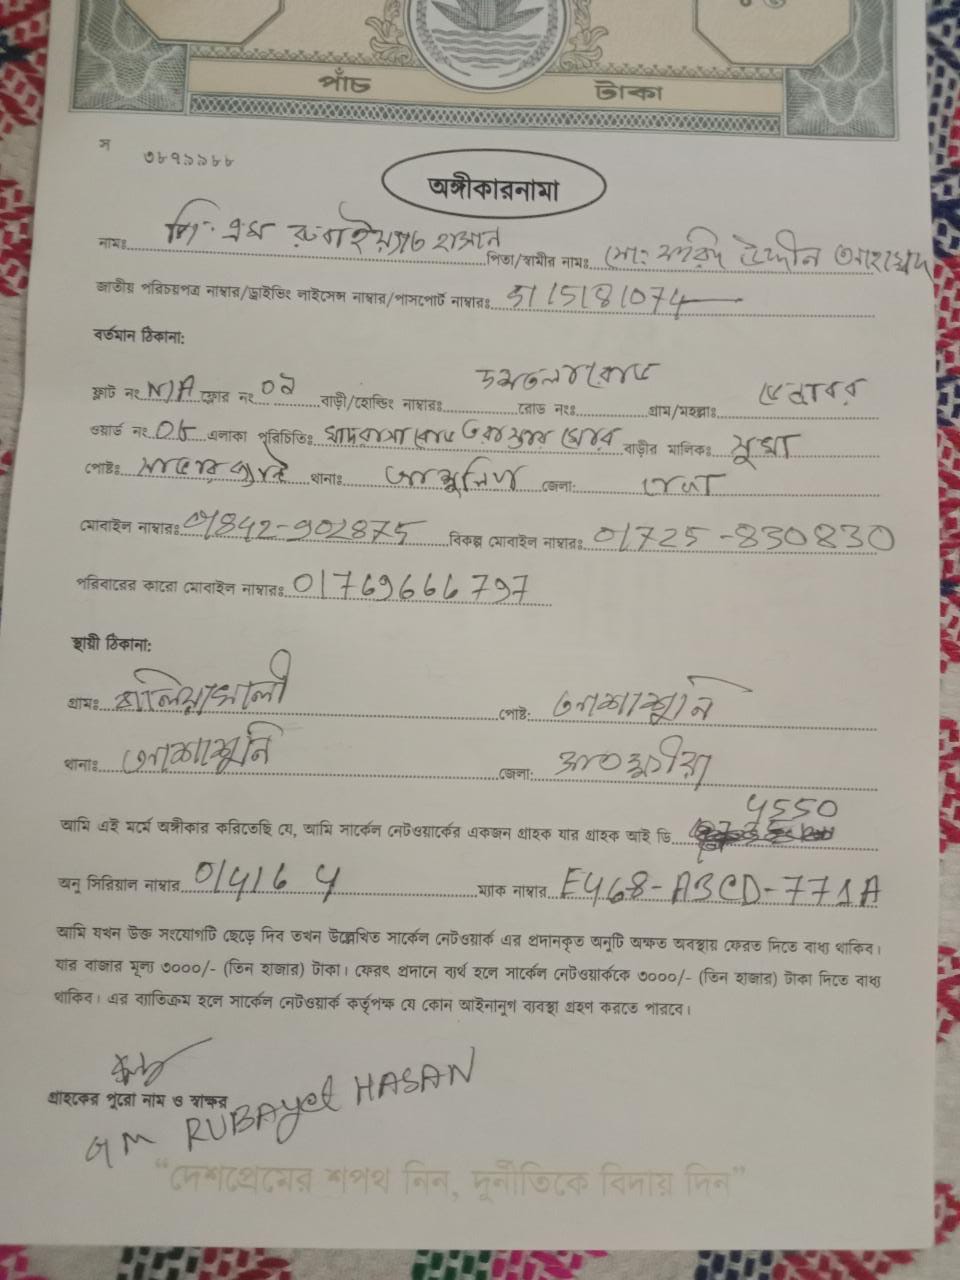 পাঁচ টাকা
স ৩৮৭১৯৮৮
অঙ্গীকারনামা
নামঃ জি. এম রুবাইয়াত হাসান পিতা/স্বামীর নামঃ মো: ফরিদ উদ্দীন আহম্মেদ
জাতীয় পরিচয়পত্র নাম্বার/ড্রাইভিং লাইসেন্স নাম্বার/পাসপোর্ট নাম্বারঃ
বর্তমান ঠিকানা:
ফ্লাট নং N/A ফ্লোর নং বাড়ী/হোল্ডিং নাম্বারঃ রোড নংঃ গ্রাম/মহল্লাঃ
ওয়ার্ড নং 08 এলাকা পরিচিতিঃ মাদরাসা রোড বাড়ীর মালিকঃ
পোষ্টঃ থানাঃ জেলা:
মোবাইল নাম্বারঃ 01842-902875 বিকল্প মোবাইল নাম্বারঃ 01725-830830
পরিবারের কারো মোবাইল নাম্বারঃ 01769666797
স্থায়ী ঠিকানা:
গ্রামঃ পোষ্ট: আশাশুনি
থানাঃ আশাশুনি জেলা: সাতক্ষীরা
আমি এই মর্মে অঙ্গীকার করিতেছি যে, আমি সার্কেল নেটওয়ার্কের একজন গ্রাহক যার গ্রাহক আই ডি 4550
অনু সিরিয়াল নাম্বার 014164 ম্যাক নাম্বার E468-ABCD-771A
আমি যখন উক্ত সংযোগটি ছেড়ে দিব তখন উল্লেখিত সার্কেল নেটওয়ার্ক এর প্রদানকৃত অনুটি অক্ষত অবস্থায় ফেরত দিতে বাধ্য থাকিব।
যার বাজার মূল্য ৩০০০/- (তিন হাজার) টাকা। ফেরৎ প্রদানে ব্যর্থ হলে সার্কেল নেটওয়ার্ককে ৩০০০/- (তিন হাজার) টাকা দিতে বাধ্য
থাকিব। এর ব্যতিক্রম হলে সার্কেল নেটওয়ার্ক কর্তৃপক্ষ যে কোন আইনানুগ ব্যবস্থা গ্রহণ করতে পারবে।
গ্রাহকের পুরো নাম ও স্বাক্ষর
GM RUBAyet HASAN
“দেশপ্রেমের শপথ নিন, দুর্নীতিকে বিদায় দিন”